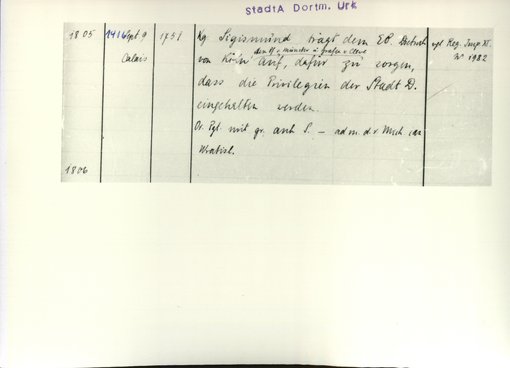 StadtA Dortm. Urk
1805 1416 Sept 9 1751 Kg Sigismund trägt dem EB. Dietrich vgl Reg. Imp XI.
Calais den B. v Münster u Grafen v Cleve No 1982
von Köln auf, dafür zu sorgen,
dass die Privilegien der Stadt D.
eingehalten werden.
Or. Pgt. mit gr. anh S. – ad m. d. r Mich can
Wratisl.
1806